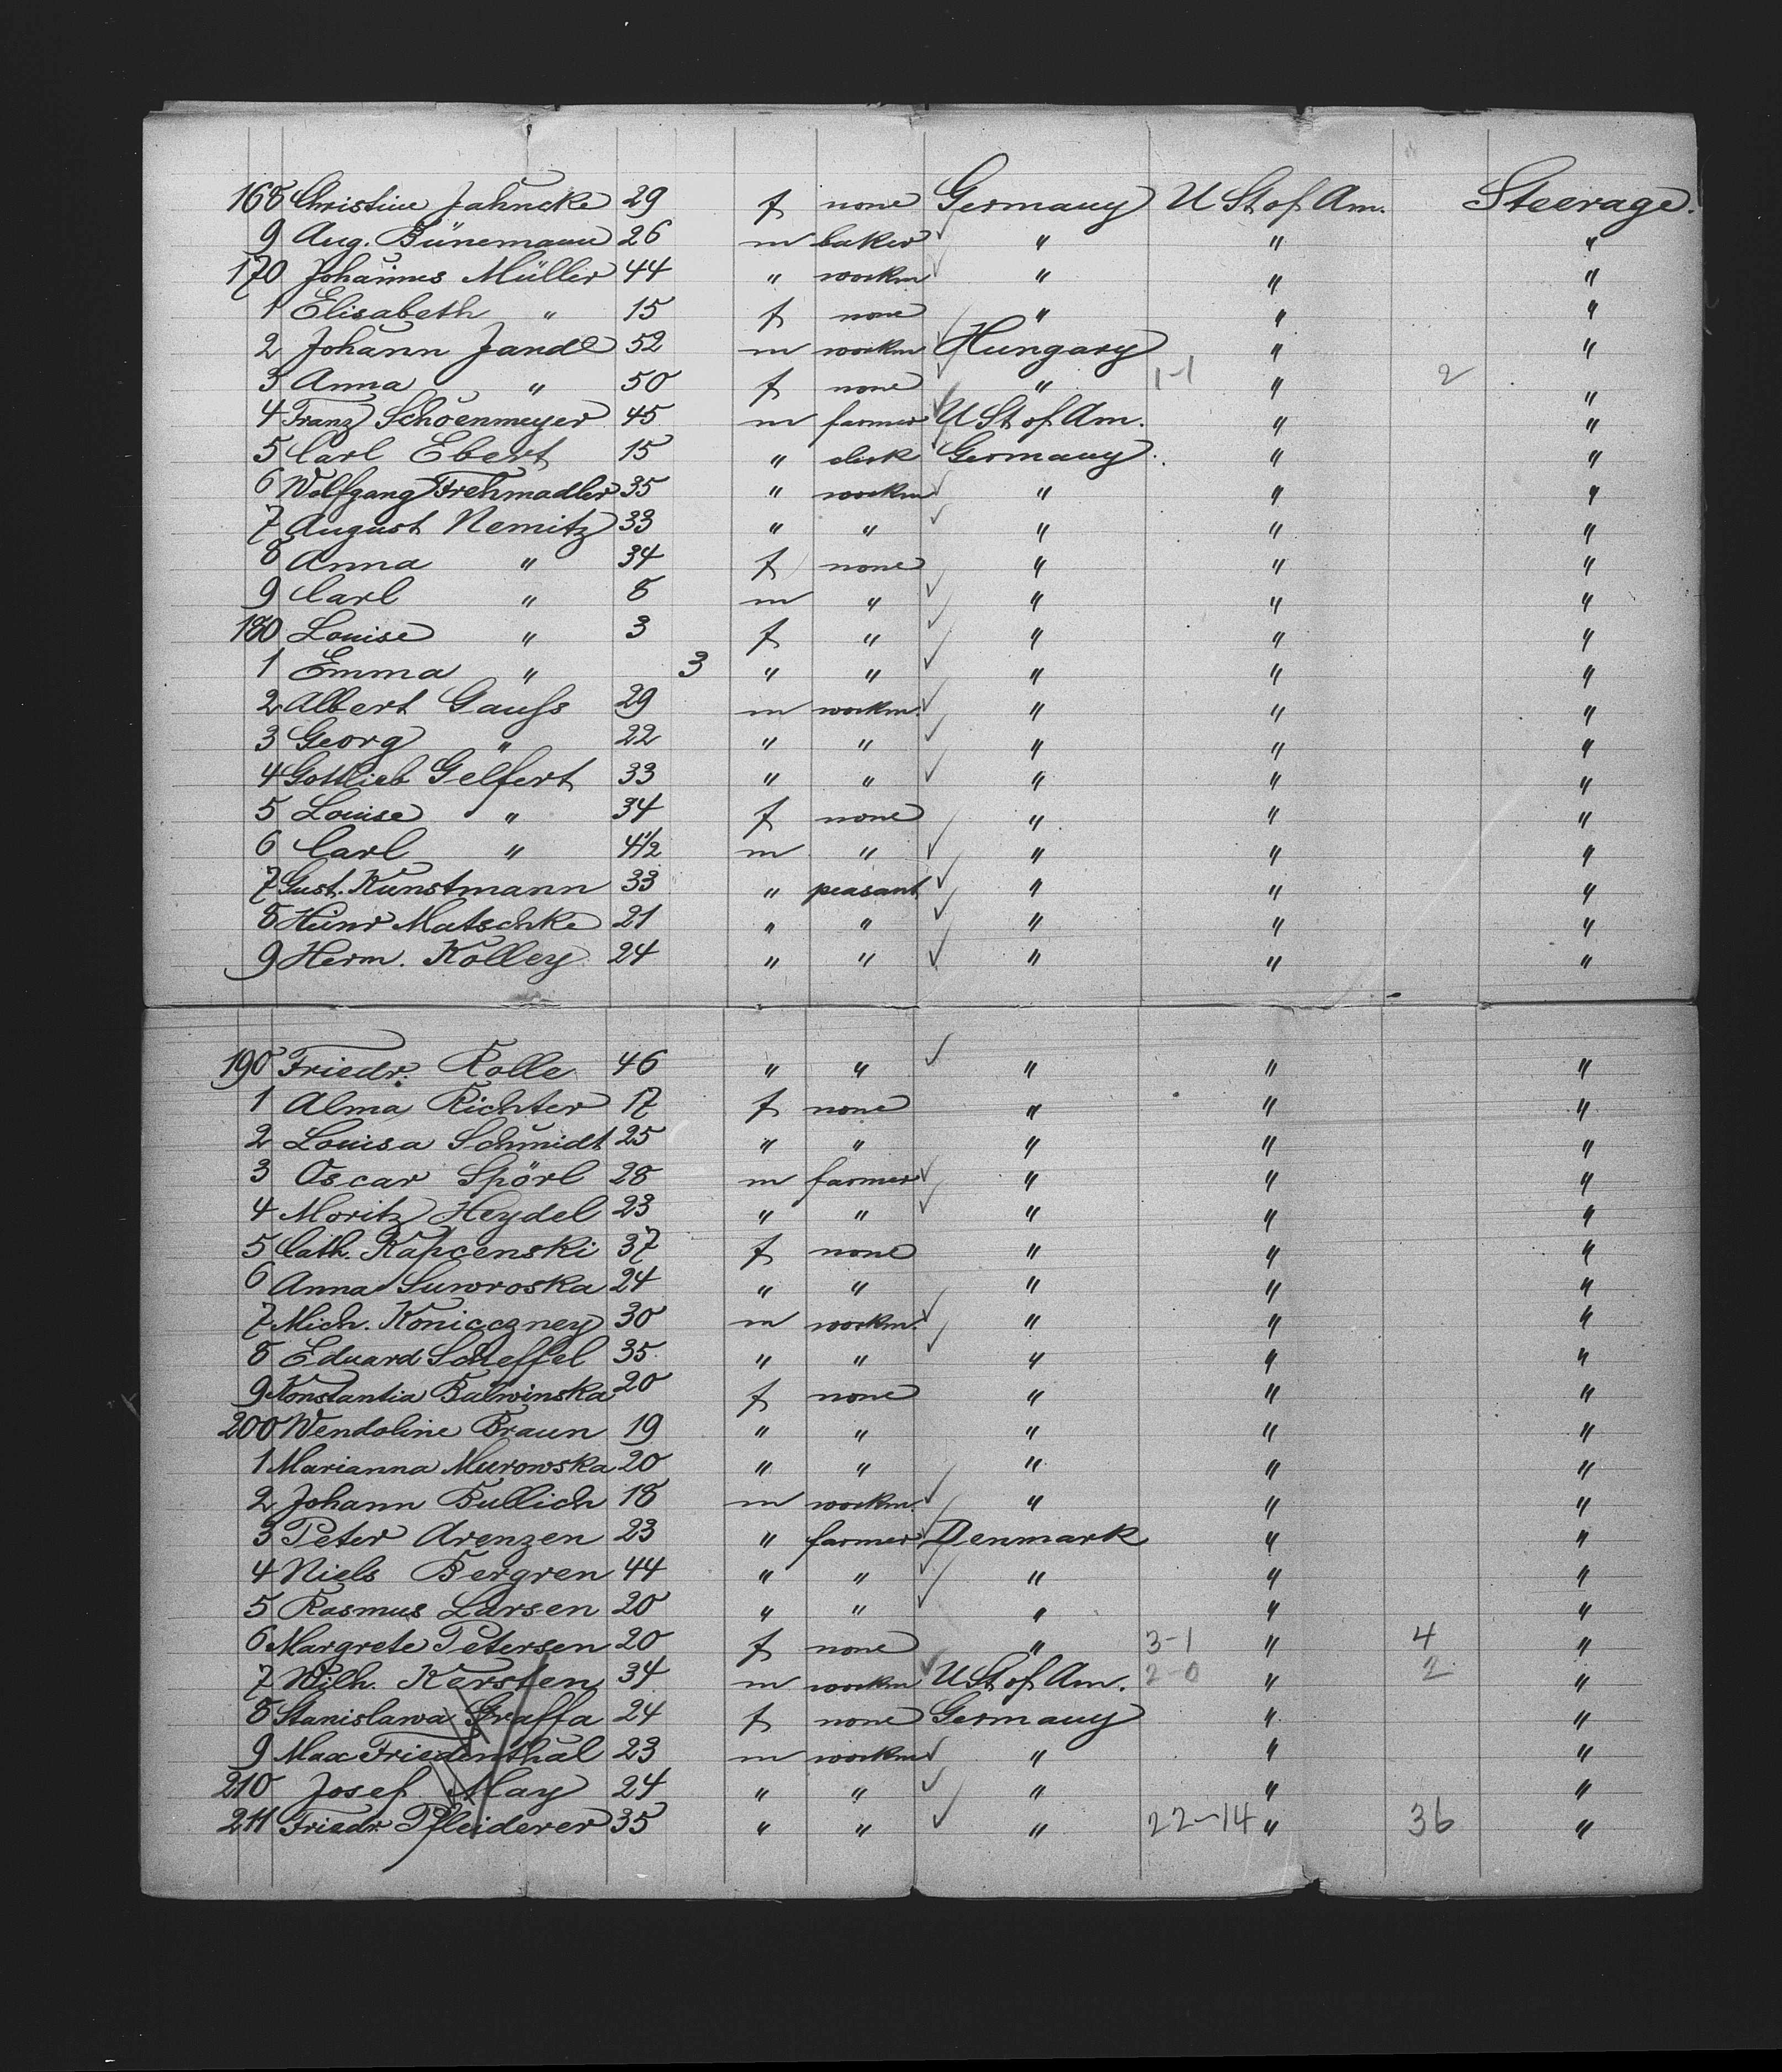 168 Christine Jahncke 29 f none Germany U St of Am. Steerage.
9 Aug. Bünemann 26 m baker " " "
170 Johannes Müller 44 " workm " " "
1 Elisabeth " 15 f none " " "
2 Johann Jandl 52 m workm Hungary " "
3 Anna " 50 f none " 1-1 " 2 "
4 Franz Schoenmeyer 45 m farmer U St of Am. " "
5 Carl Ebert 15 " clerk Germany " "
6 Wolfgang Frehmadler 35 " workm " " "
7 August Nemitz 33 " " " " "
8 Anna " 34 f none " " "
9 Carl " 8 m " " " "
180 Louise " 3 f " " " "
1 Emma " 3 " " " " "
2 Albert Gauſs 29 m workm. " " "
3 Georg " 22 " " " " "
4 Gottlieb Gelfert 33 " " " " "
5 Louise " 34 f none " " "
6 Carl " 4 1/2 m " " " "
7 Gust. Kunstmann 33 " peasant " " "
8 Heinr Matschke 21 " " " " "
9 Herm. Kolley 24 " " " " "
190 Friedr. Rolle 46 " " " " "
1 Alma Richter 17 f none " " "
2 Louisa Schmidt 25 " " " " "
3 Oscar Spörl 28 m farmer " " "
4 Moritz Heydel 23 " " " " "
5 Cath. Kapcenski 37 f none " " "
6 Anna Suwroska 24 " " " " "
7 Mich. Konicczney 30 m workm. " " "
8 Eduard Scheffel 35 " " " " "
9 Konstantia Balwinska 20 f none " " "
200 Wendoline Braun 19 " " " " "
1 Marianna Murowska 20 " " " " "
2 Johann Bullich 18 m workm. " " "
3 Peter Arenzen 23 " farmer Denmark " "
4 Niels Bergren 44 " " " " "
5 Rasmus Larsen 20 " " " " "
6 Margrete Petersen 20 f none " 3-1 " 4 "
7 Wilh. Kersten 34 m workm U St of Am. 2-0 " 2 "
8 Stanislawa Graffa 24 f none Germany " "
9 Max Friedenthal 23 m workm " " "
210 Josef May 24 " " " " "
211 Friedr Pfleiderer 35 " " " 22-14 " 36 "